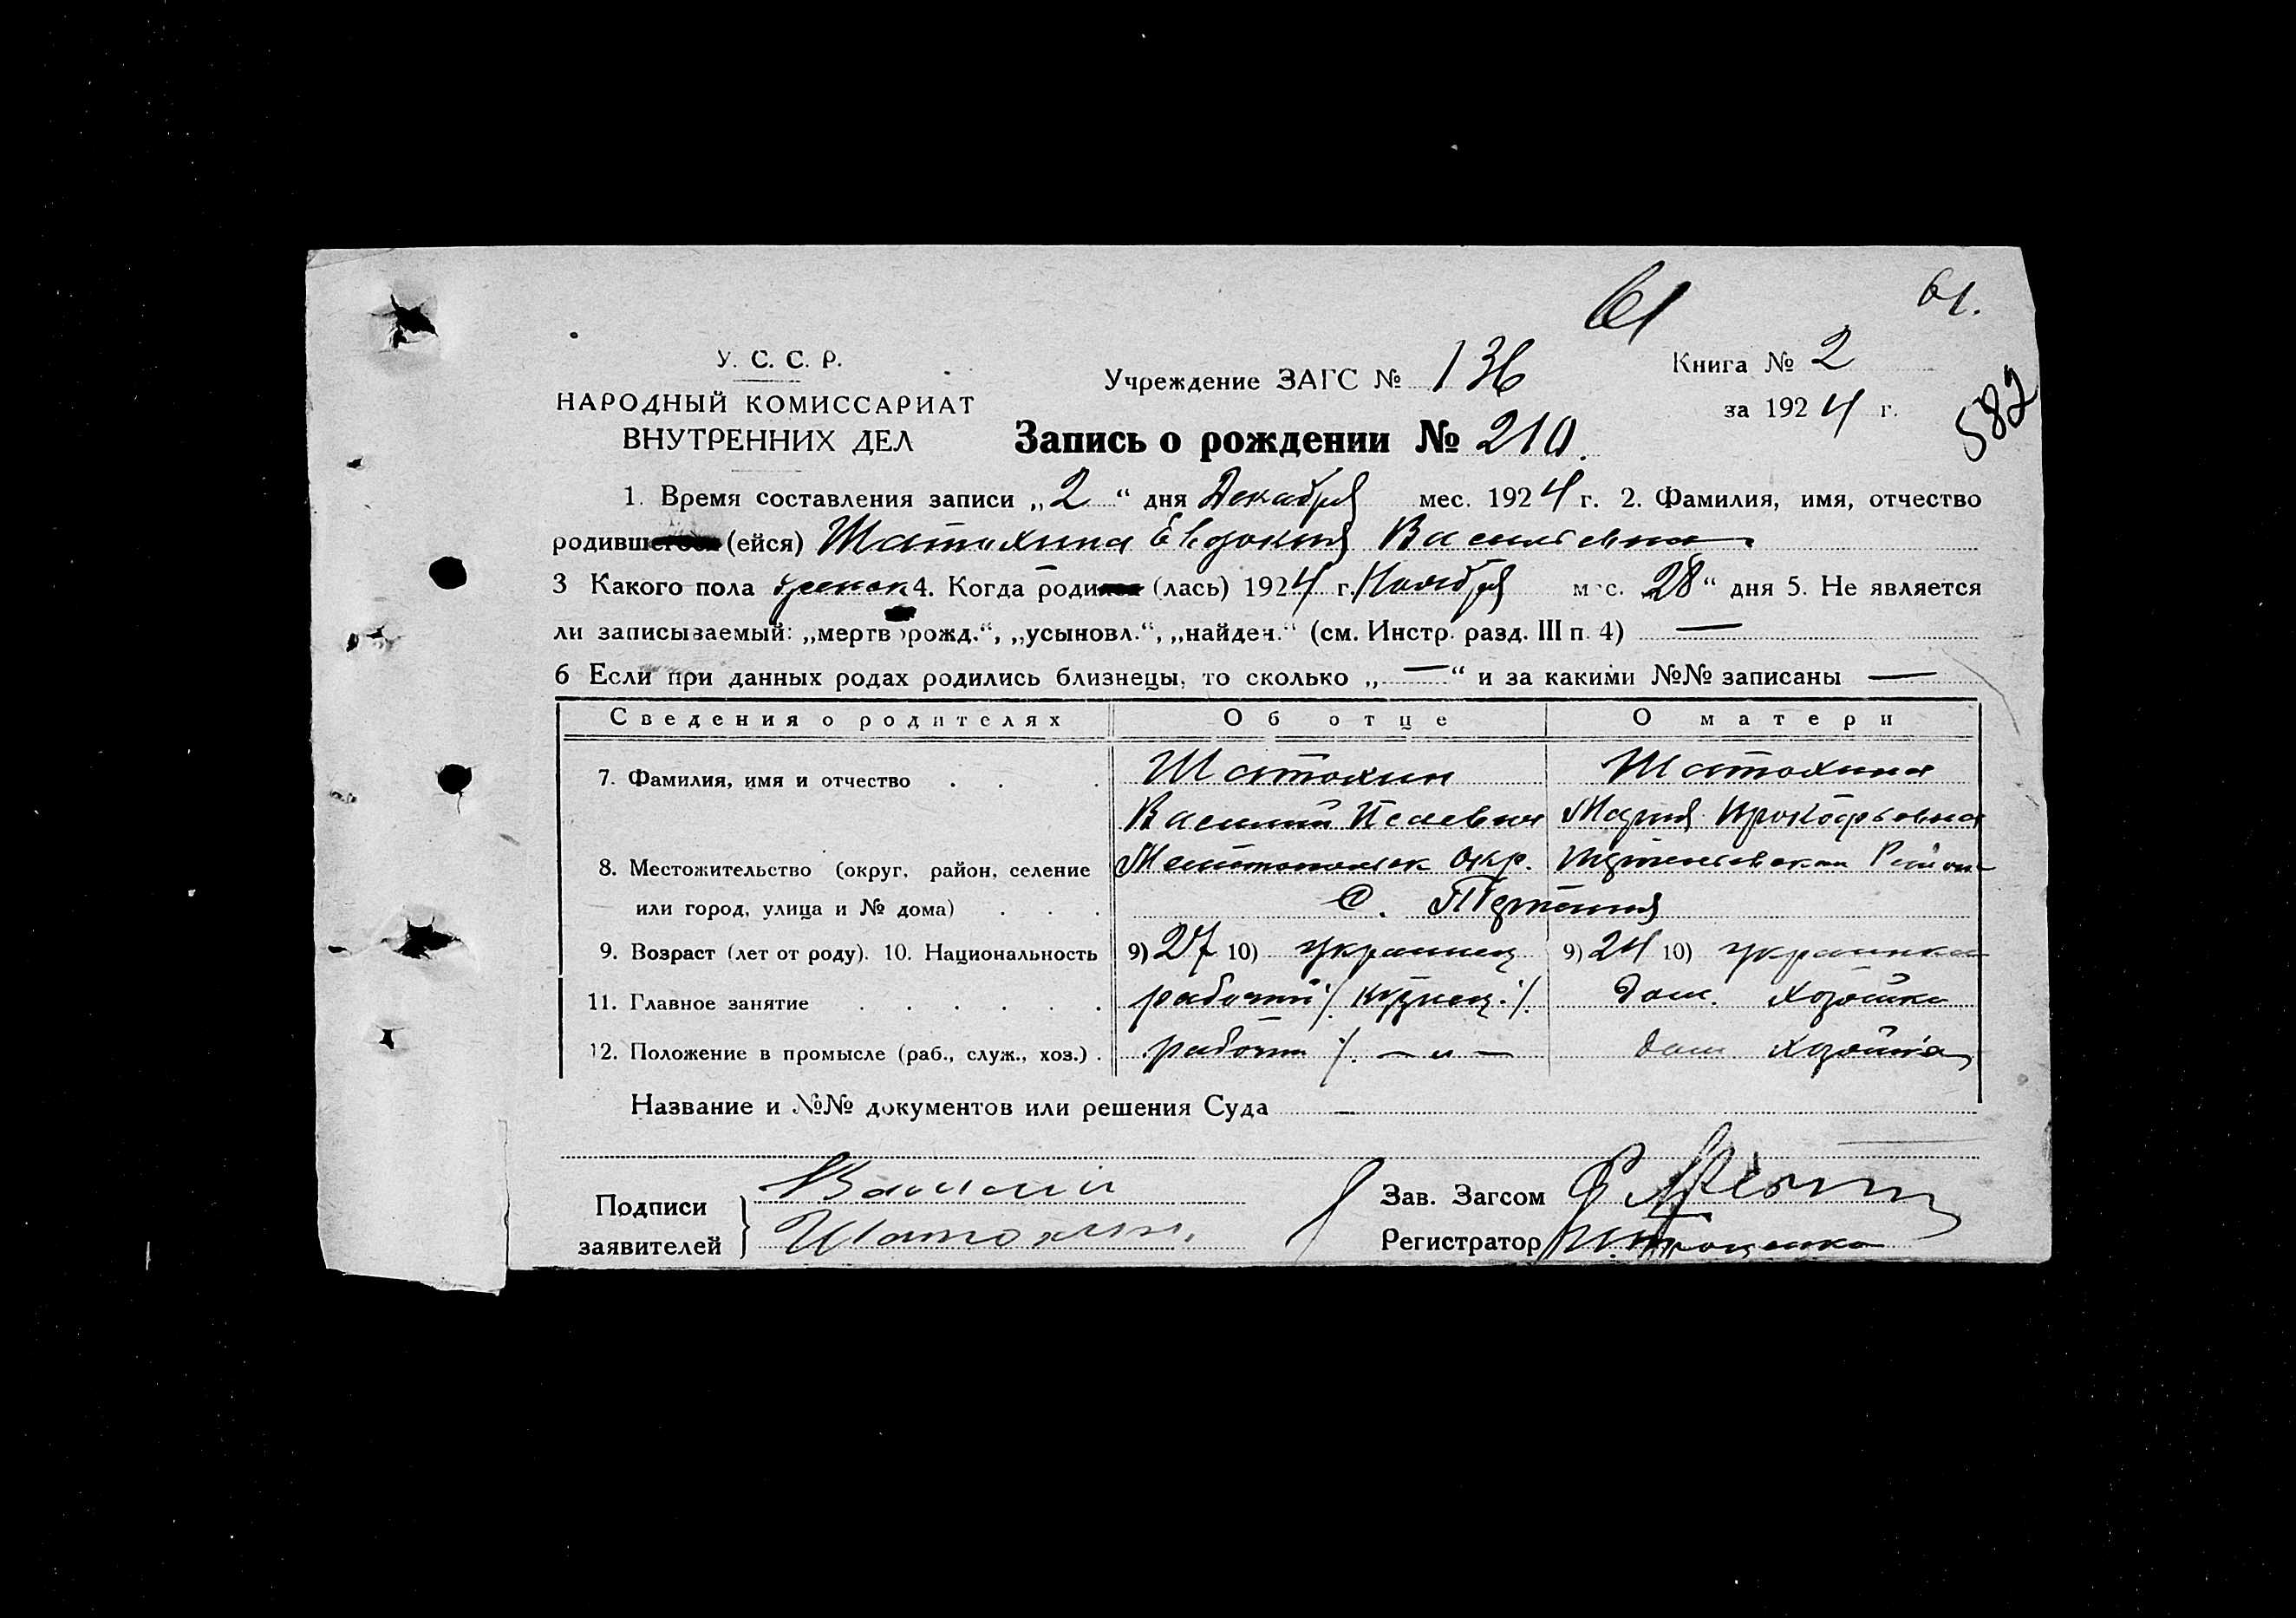 61
61.
У. С. С. Р.
НАРОДНЫЙ КОМИССАРИАТ
ВНУТРЕННИХ ДЕЛ
Учреждение ЗАГС № 136
Книга № 2
за 1924 г.
582
Запись о рождении № 210.
1. Время составления записи „2“ дня Декабря мес. 1924 г. 2. Фамилия, имя, отчество
родивш (ейся) Шатохина Евдокия Васильевна
3 Какого пола женск 4. Когда роди (лась) 1924 г. Ноября мес. „28“ дня 5. Не является
ли записываемый: „мертворожд.“, „усыновл.“, „найден.“ (см. Инстр. разд. III п. 4) —
6 Если при данных родах родились близнецы, то сколько „—“ и за какими №№ записаны —
Сведения о родителях Об отце О матери
7. Фамилия, имя и отчество . . . Шатохин Шатохина
Василий Исаевич Мария Прокофьевна
8. Местожительство (округ, район, селение Мелитопольск Окр. Район
или город, улица и № дома) . . . С.
9. Возраст (лет от роду). 10. Национальность 9) 27 10) украинец 9) 24 10) украинка
11. Главное занятие . . . . . . рабочий /. кузнец ./. Дом. Хозяйка
12. Положение в промысле (раб., служ., хоз.) . рабочий /. — „ — дом. Хозяйка
Название и №№ документов или решения Суда —
Подписи
заявителей
Василий
Шатохин.
Зав. Загсом
Регистратор Проценко